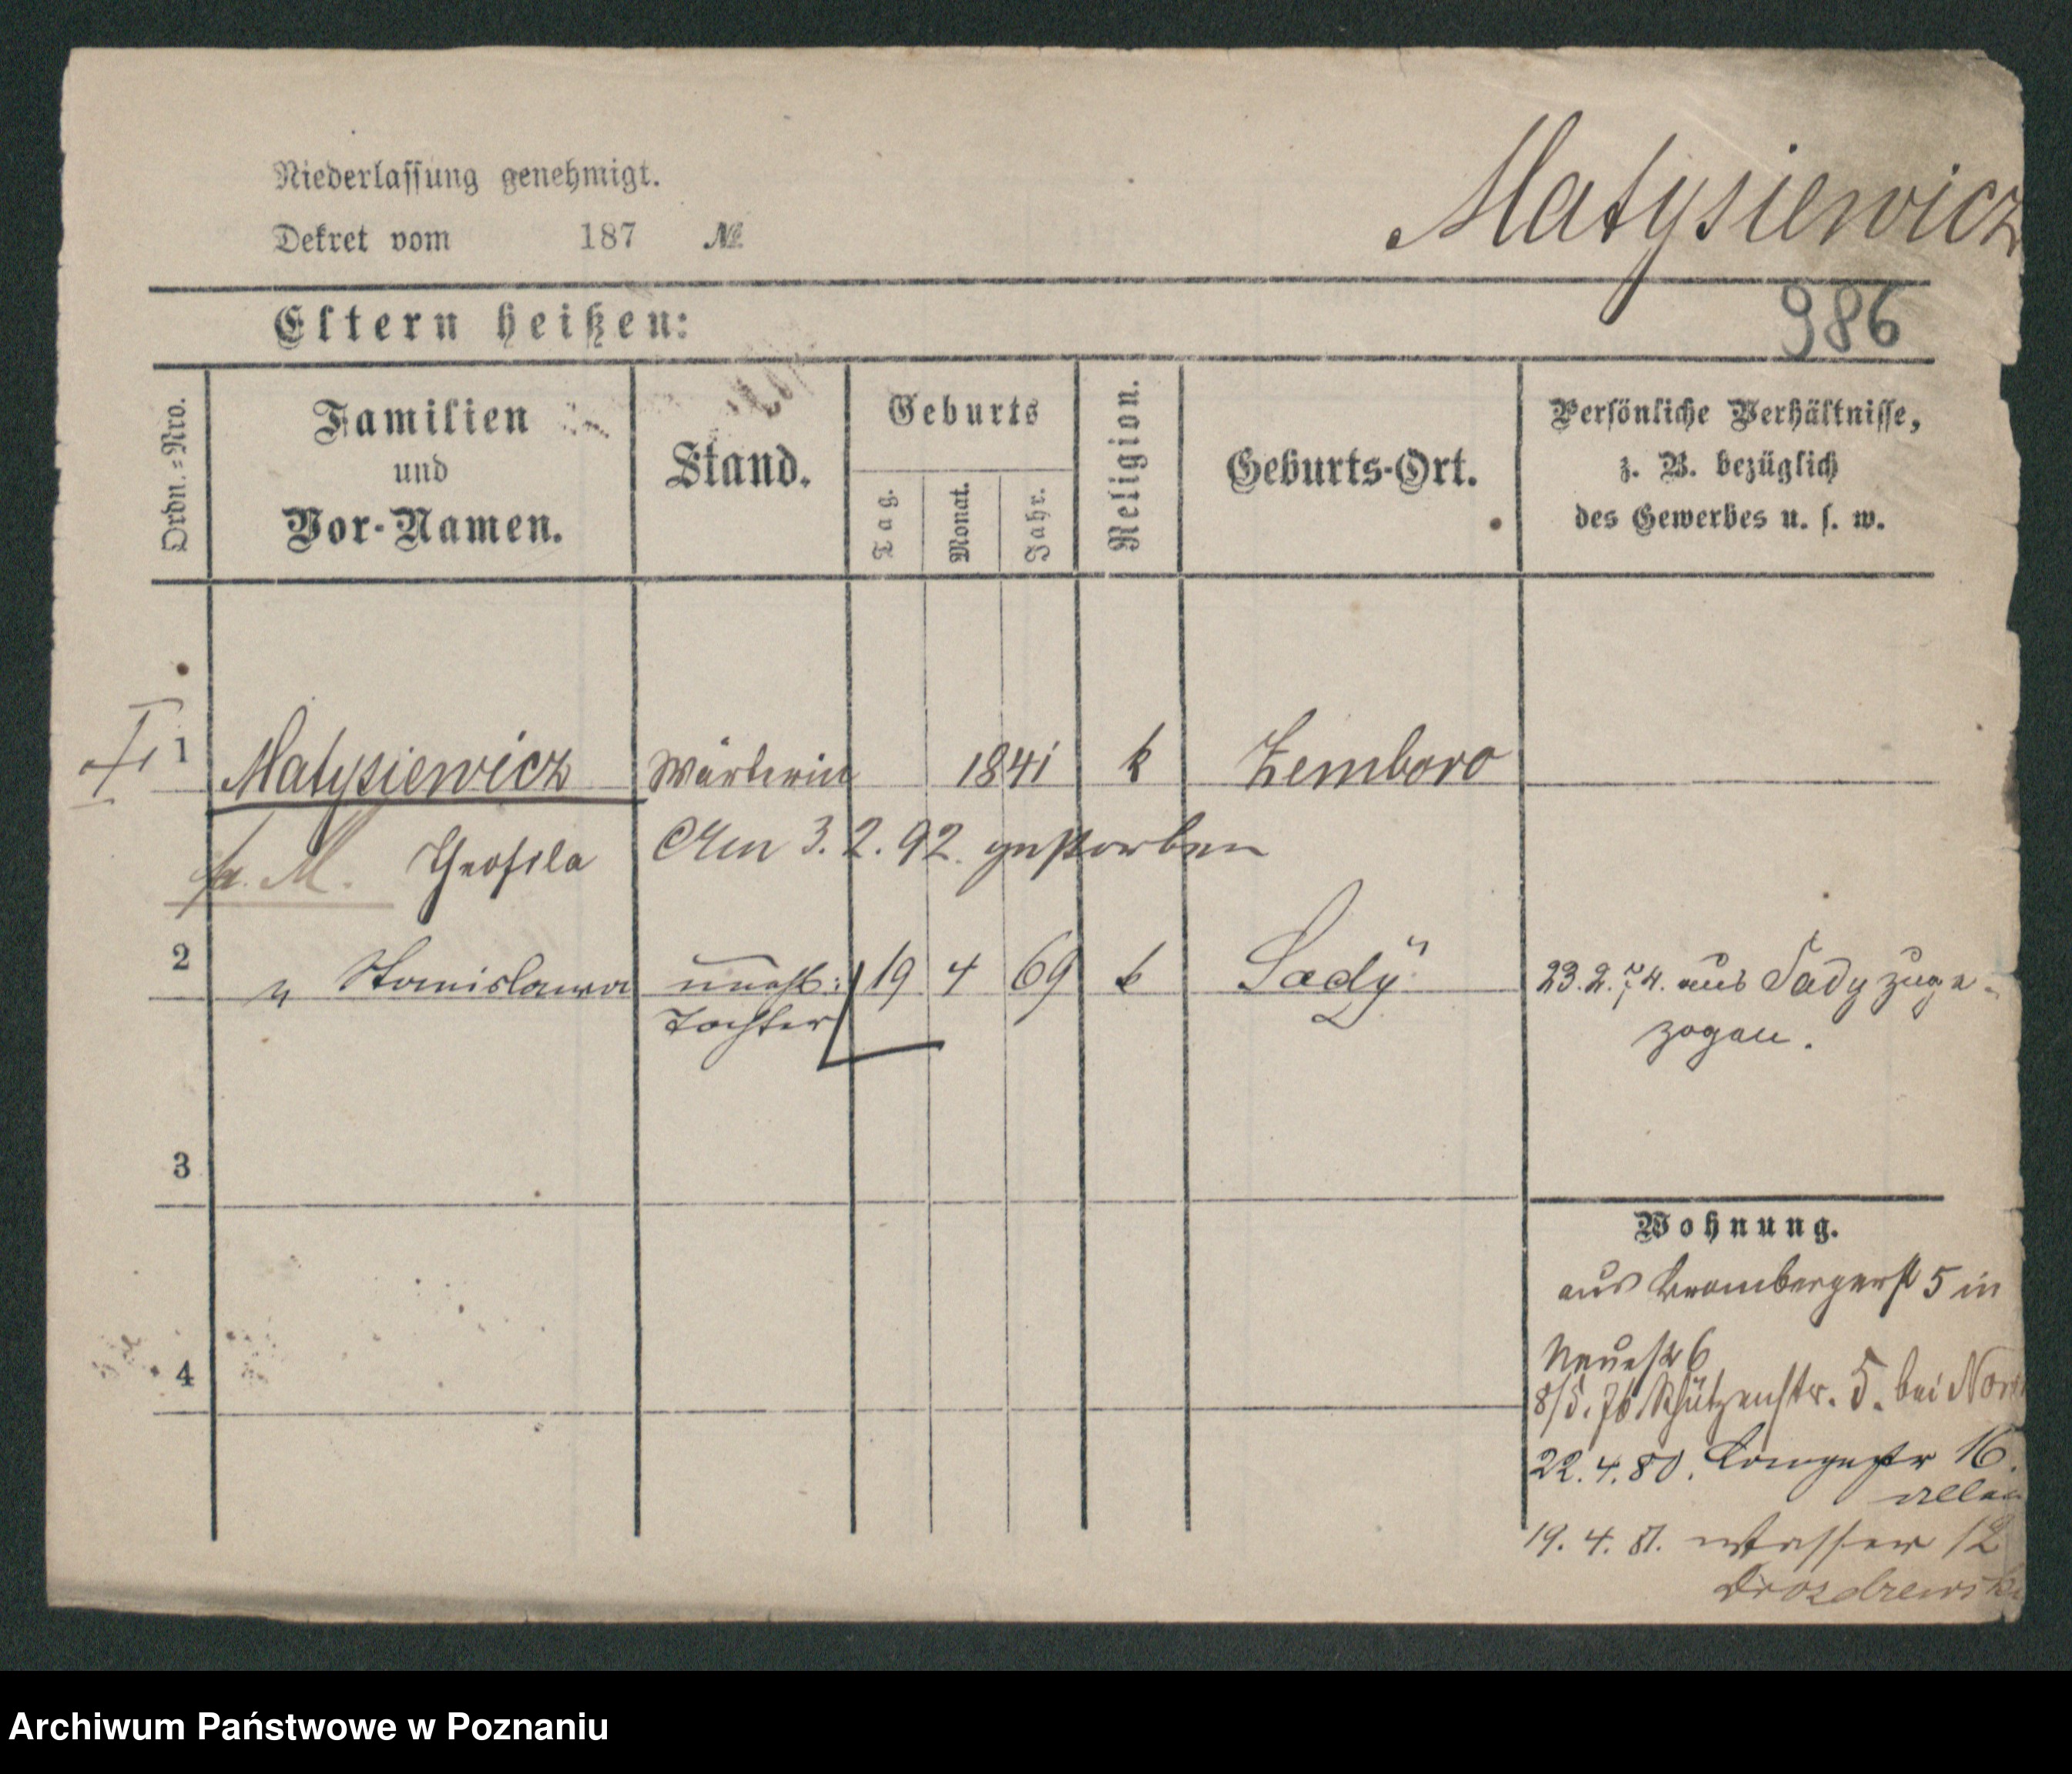 Niederlassung genehmigt.
Matysiewicz
Dekret vom 187 №
Eltern heißen:
986
Ordn.-Nro.
Familien
und
Vor-Namen.
Stand.
Geburts
Tag.
Monat.
Jahr.
Religion.
Geburts-Ort.
Persönliche Verhältnisse,
z. B. bezüglich
des Gewerbes u. s. w.
1 Matysiewicz Wärterin 1841 k Zemboro
M. Theofila Am 3.2.92. gestorben
2 " Stanislawa unehl: 19 4 69 k Sady 23.2.74. aus Sady zuge-
Tochter zogen.
3
Wohnung.
aus Brombergerst 5 in
Neuestr 6
4
8/5.76 Schützenstr. 5. bei
22.4.80. Langestr 16.
19.4.81. Wasser 12
Drozdzewski
Archiwum Państwowe w Poznaniu